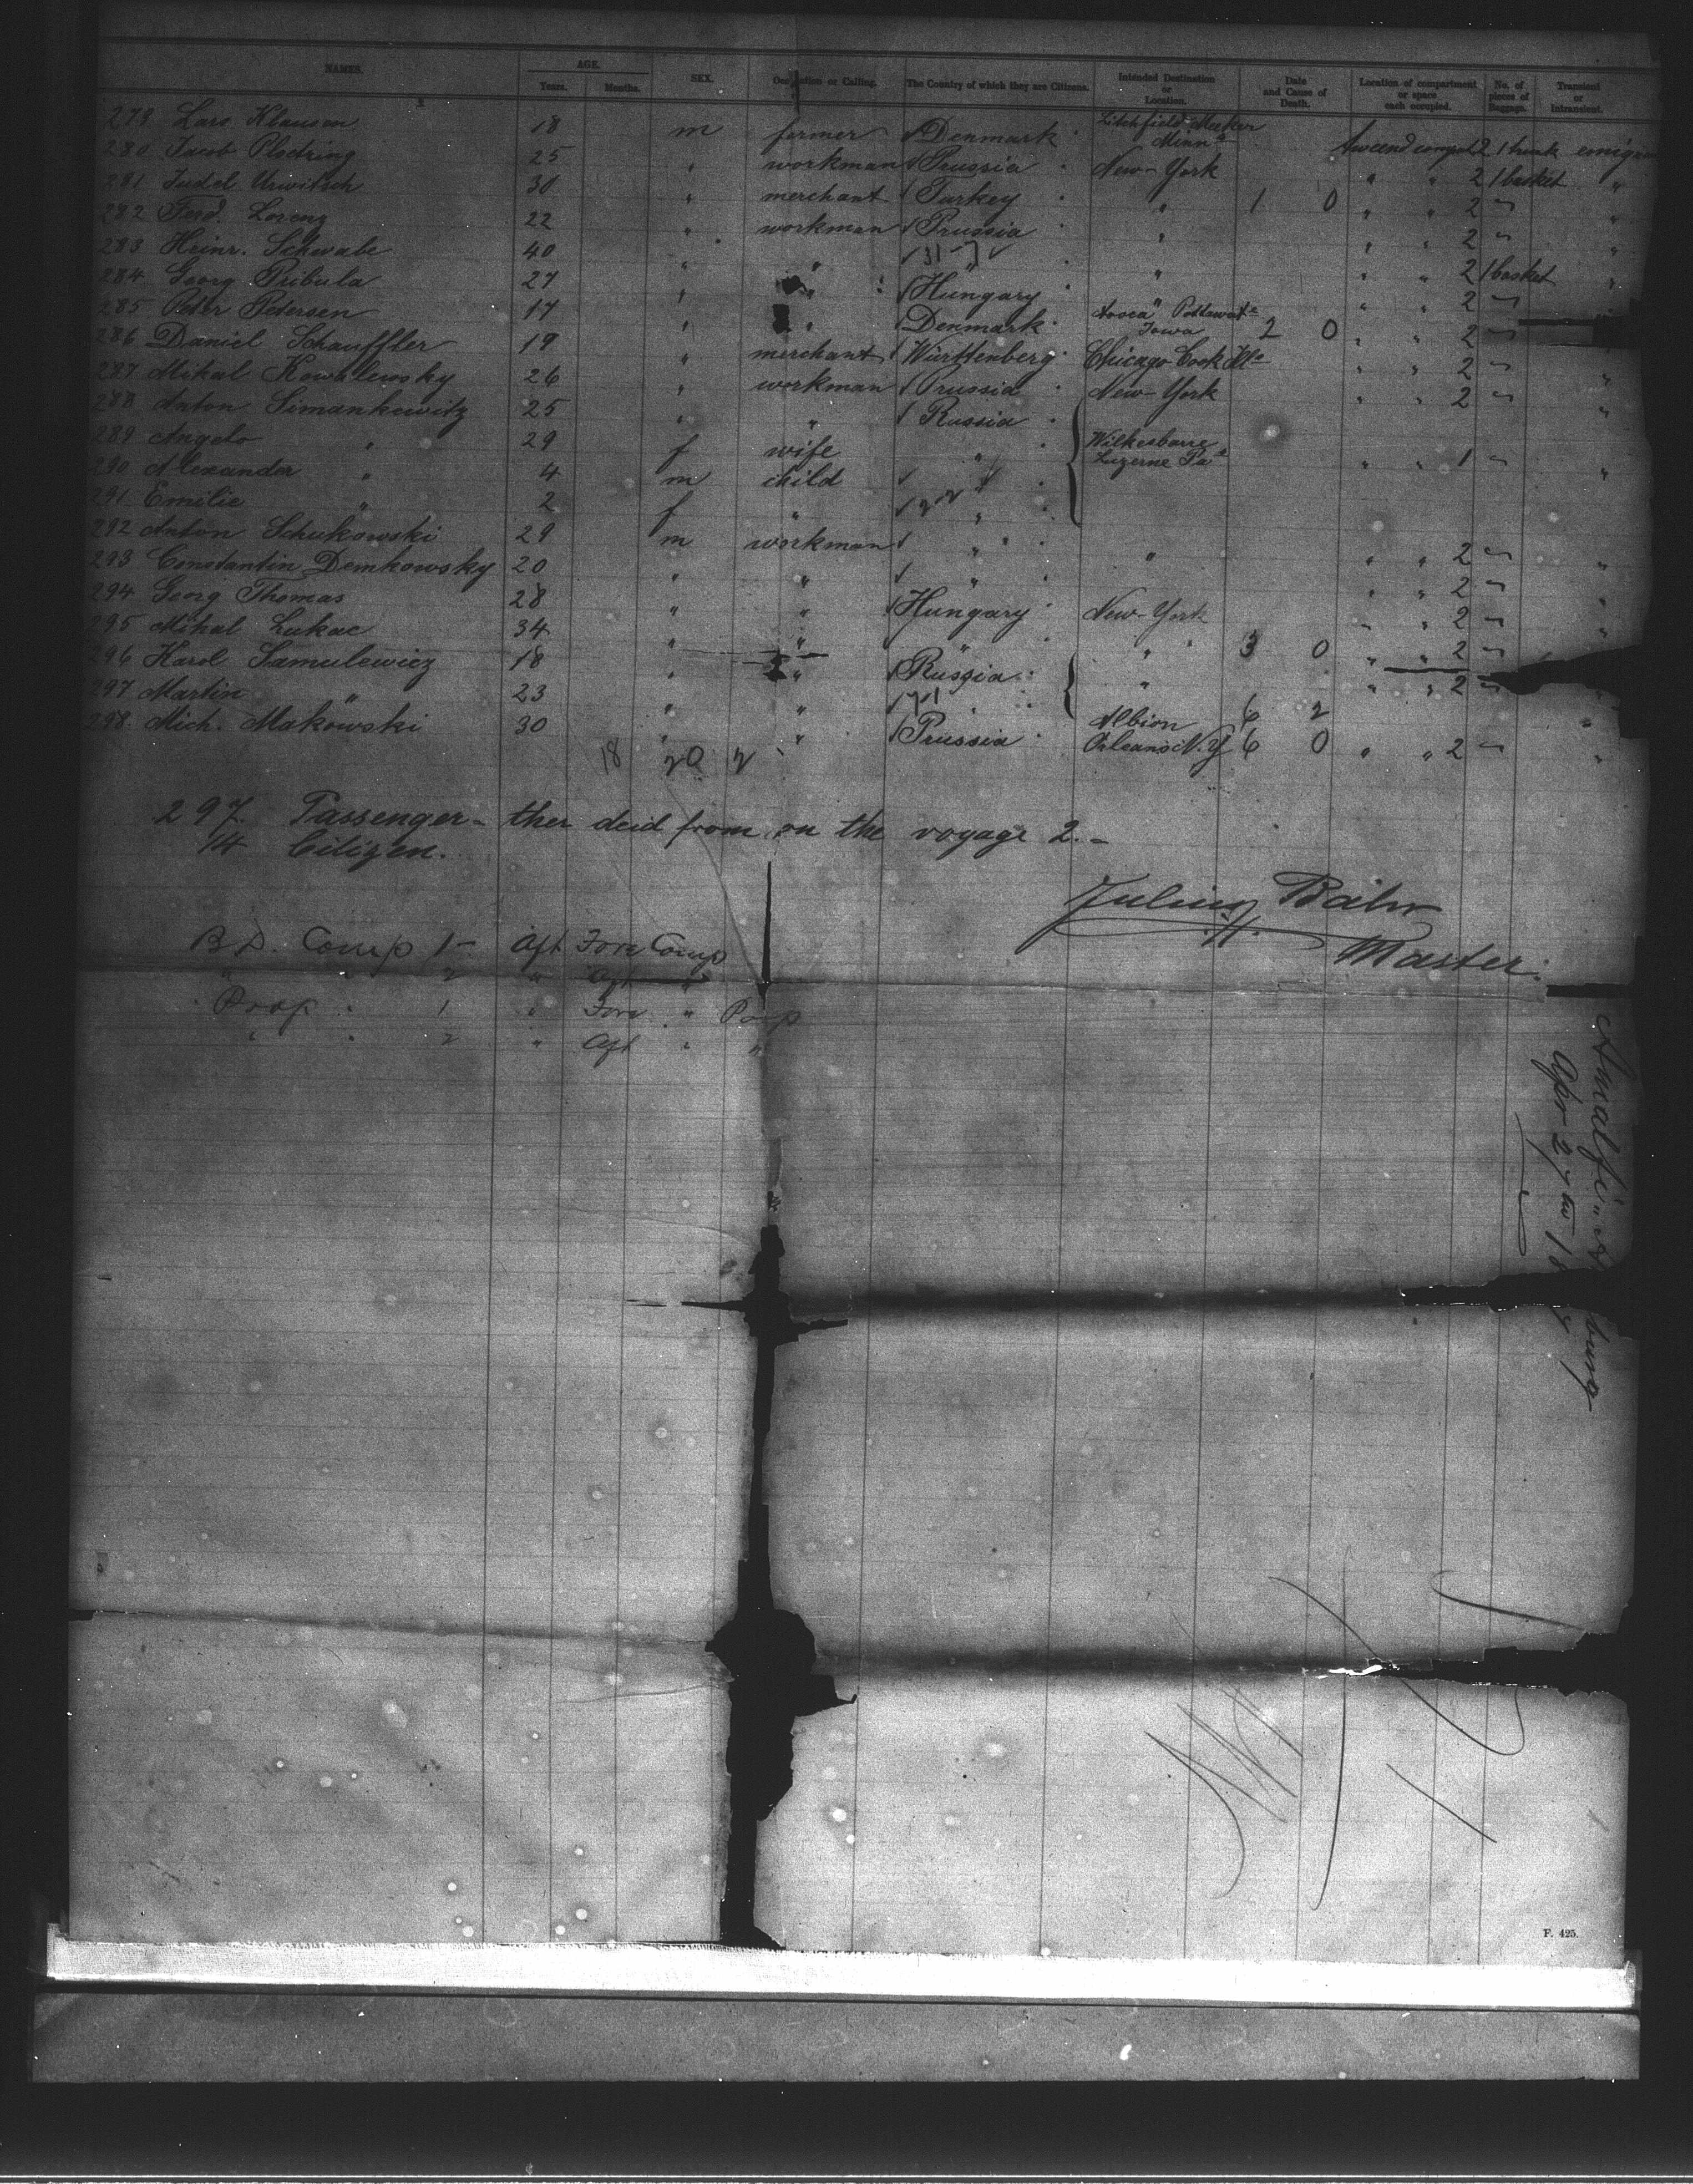 NAMES. AGE. Years. Months. SEX. Occupation or Calling. The Country of which they are Citizens. Intended Destination or Location. Date and Cause of Death. Location of compartment or space each occupied. No. of pieces of Baggage. Transient or Intransient.
278 Lars Klausen 18 m farmer Denmark Litchfield Meeker Minn 2 1 trunk
280 Jacob 25 " workman Prussia New-York " " 2 1 basket "
281 Judel Urwitsch 30 " merchant Turkey " 1 0 " " 2 "
282 Ferd. Lorenz 22 " workman Prussia " " " 2 "
283 Heinr. Schwabe 40 " " " " " " 2 1 basket "
284 Georg Pribula 27 " " Hungary " " " 2
285 Peter Petersen 17 " " Denmark Avoca Pottawat Iowa 2 0 " " 2
286 Daniel Schauffler 19 " merchant Württenberg Chicago Cook Ills " " 2 "
287 Mikal Kowalewsky 26 " workman Prussia New-York " " 2 "
288 Anton Simankewitz 25 " " Russia
289 Angelo " 29 f wife " Wilkesbarre Luzerne Pa " " 1 "
290 Alexander " 4 m child "
291 Emilie " 2 f " "
292 Anton Schukowski 29 m workman " " " " 2 "
293 Constantin Demkowsky 20 " " " " " 2 "
294 Georg Thomas 28 " " Hungary New-York " " 2 "
295 Mihal Lukac 34 " " " " 3 0 " " 2
296 Karol Samulewicz 18 " " Russia " " " 2 "
297 Martin " 23 " " " 6 2 "
298 Mich. Makowski 30 " " Prussia Albion Orleans N.Y. 6 0 " " 2 "
18 20 2
297. Passenger- ther deid from on the voyage 2.-
14 Citizen.
Julius Bahr
Master.
B.D. Comp 1- Aft Fore Comp
" " 2 " Aft "
Poop " 1 " Fore " Poop
" " 2 " Aft " "
Amalfi
Apr 27
burg
F. 425.